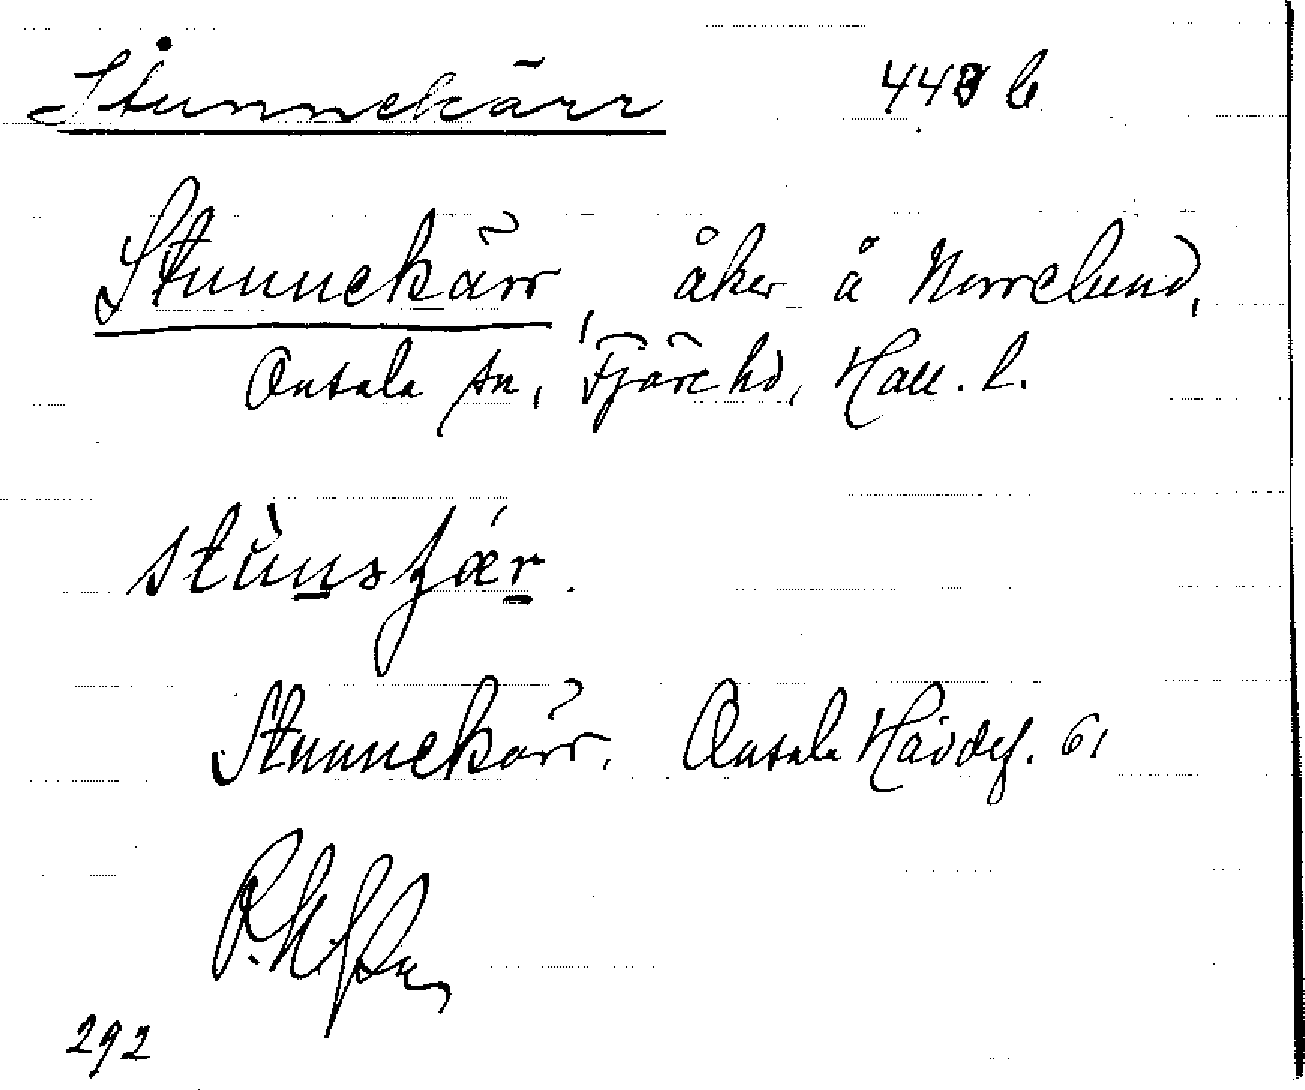 Stunnekärr 448 b
Stunnekärr, åker å Norrelund,
Onsala sn, Fjäre hd, Hall. l.
stùnəʃǽr.
Stunnekärr. Onsala Hävdef. 61
292